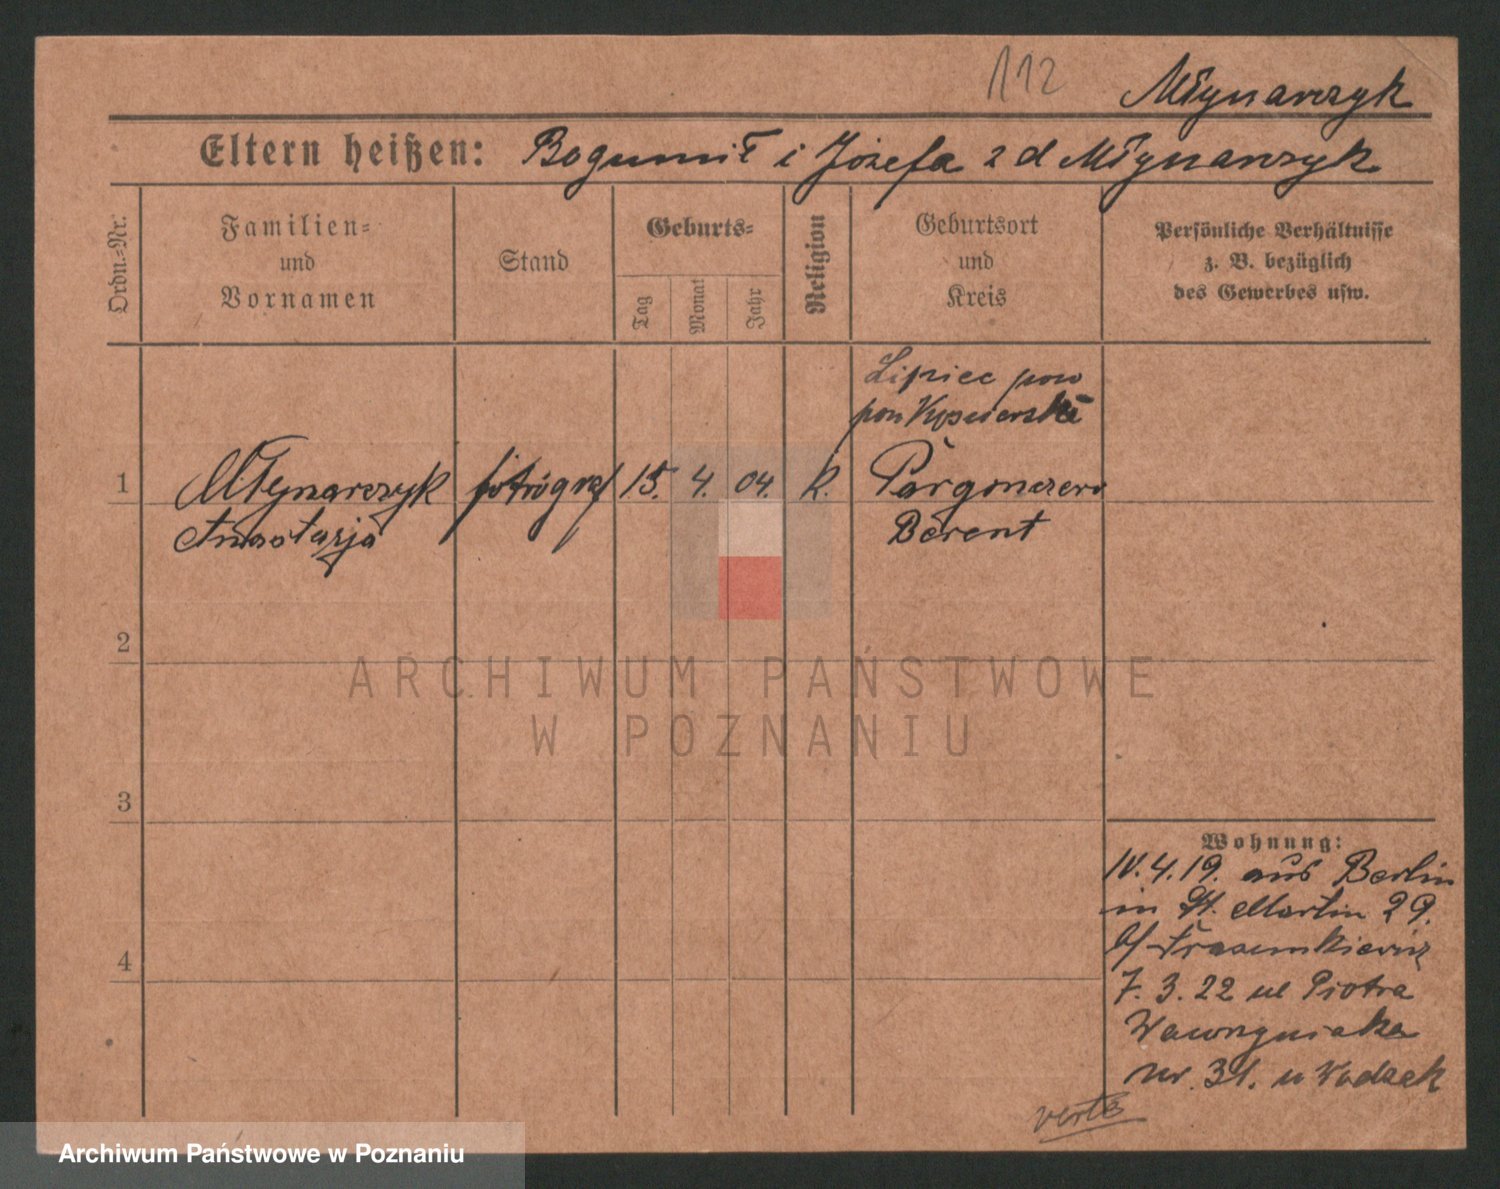 112
Młynarczyk
Eltern heißen: Bogumił i Józefa z d Młynarczyk
Ordn.-Nr.
Familien- und Vornamen
Stand
Geburts-
Tag
Monat
Jahr
Religion
Geburtsort und Kreis
Persönliche Verhältnisse
z. B. bezüglich
des Gewerbes usw.
Lipiec pow
pow Kościerski
1 Młynarczyk fotógraf 15. 4. 04. k.
Anastazja Berent
2
3
4
Wohnung:
IV.4.19. aus Berlin
in St. Martin 29.
b/
7.3.22 ul Piotra
Wawrzyniaka
nr. 31. u
verte
ARCHIWUM PAŃSTWOWE
W POZNANIU
Archiwum Państwowe w Poznaniu